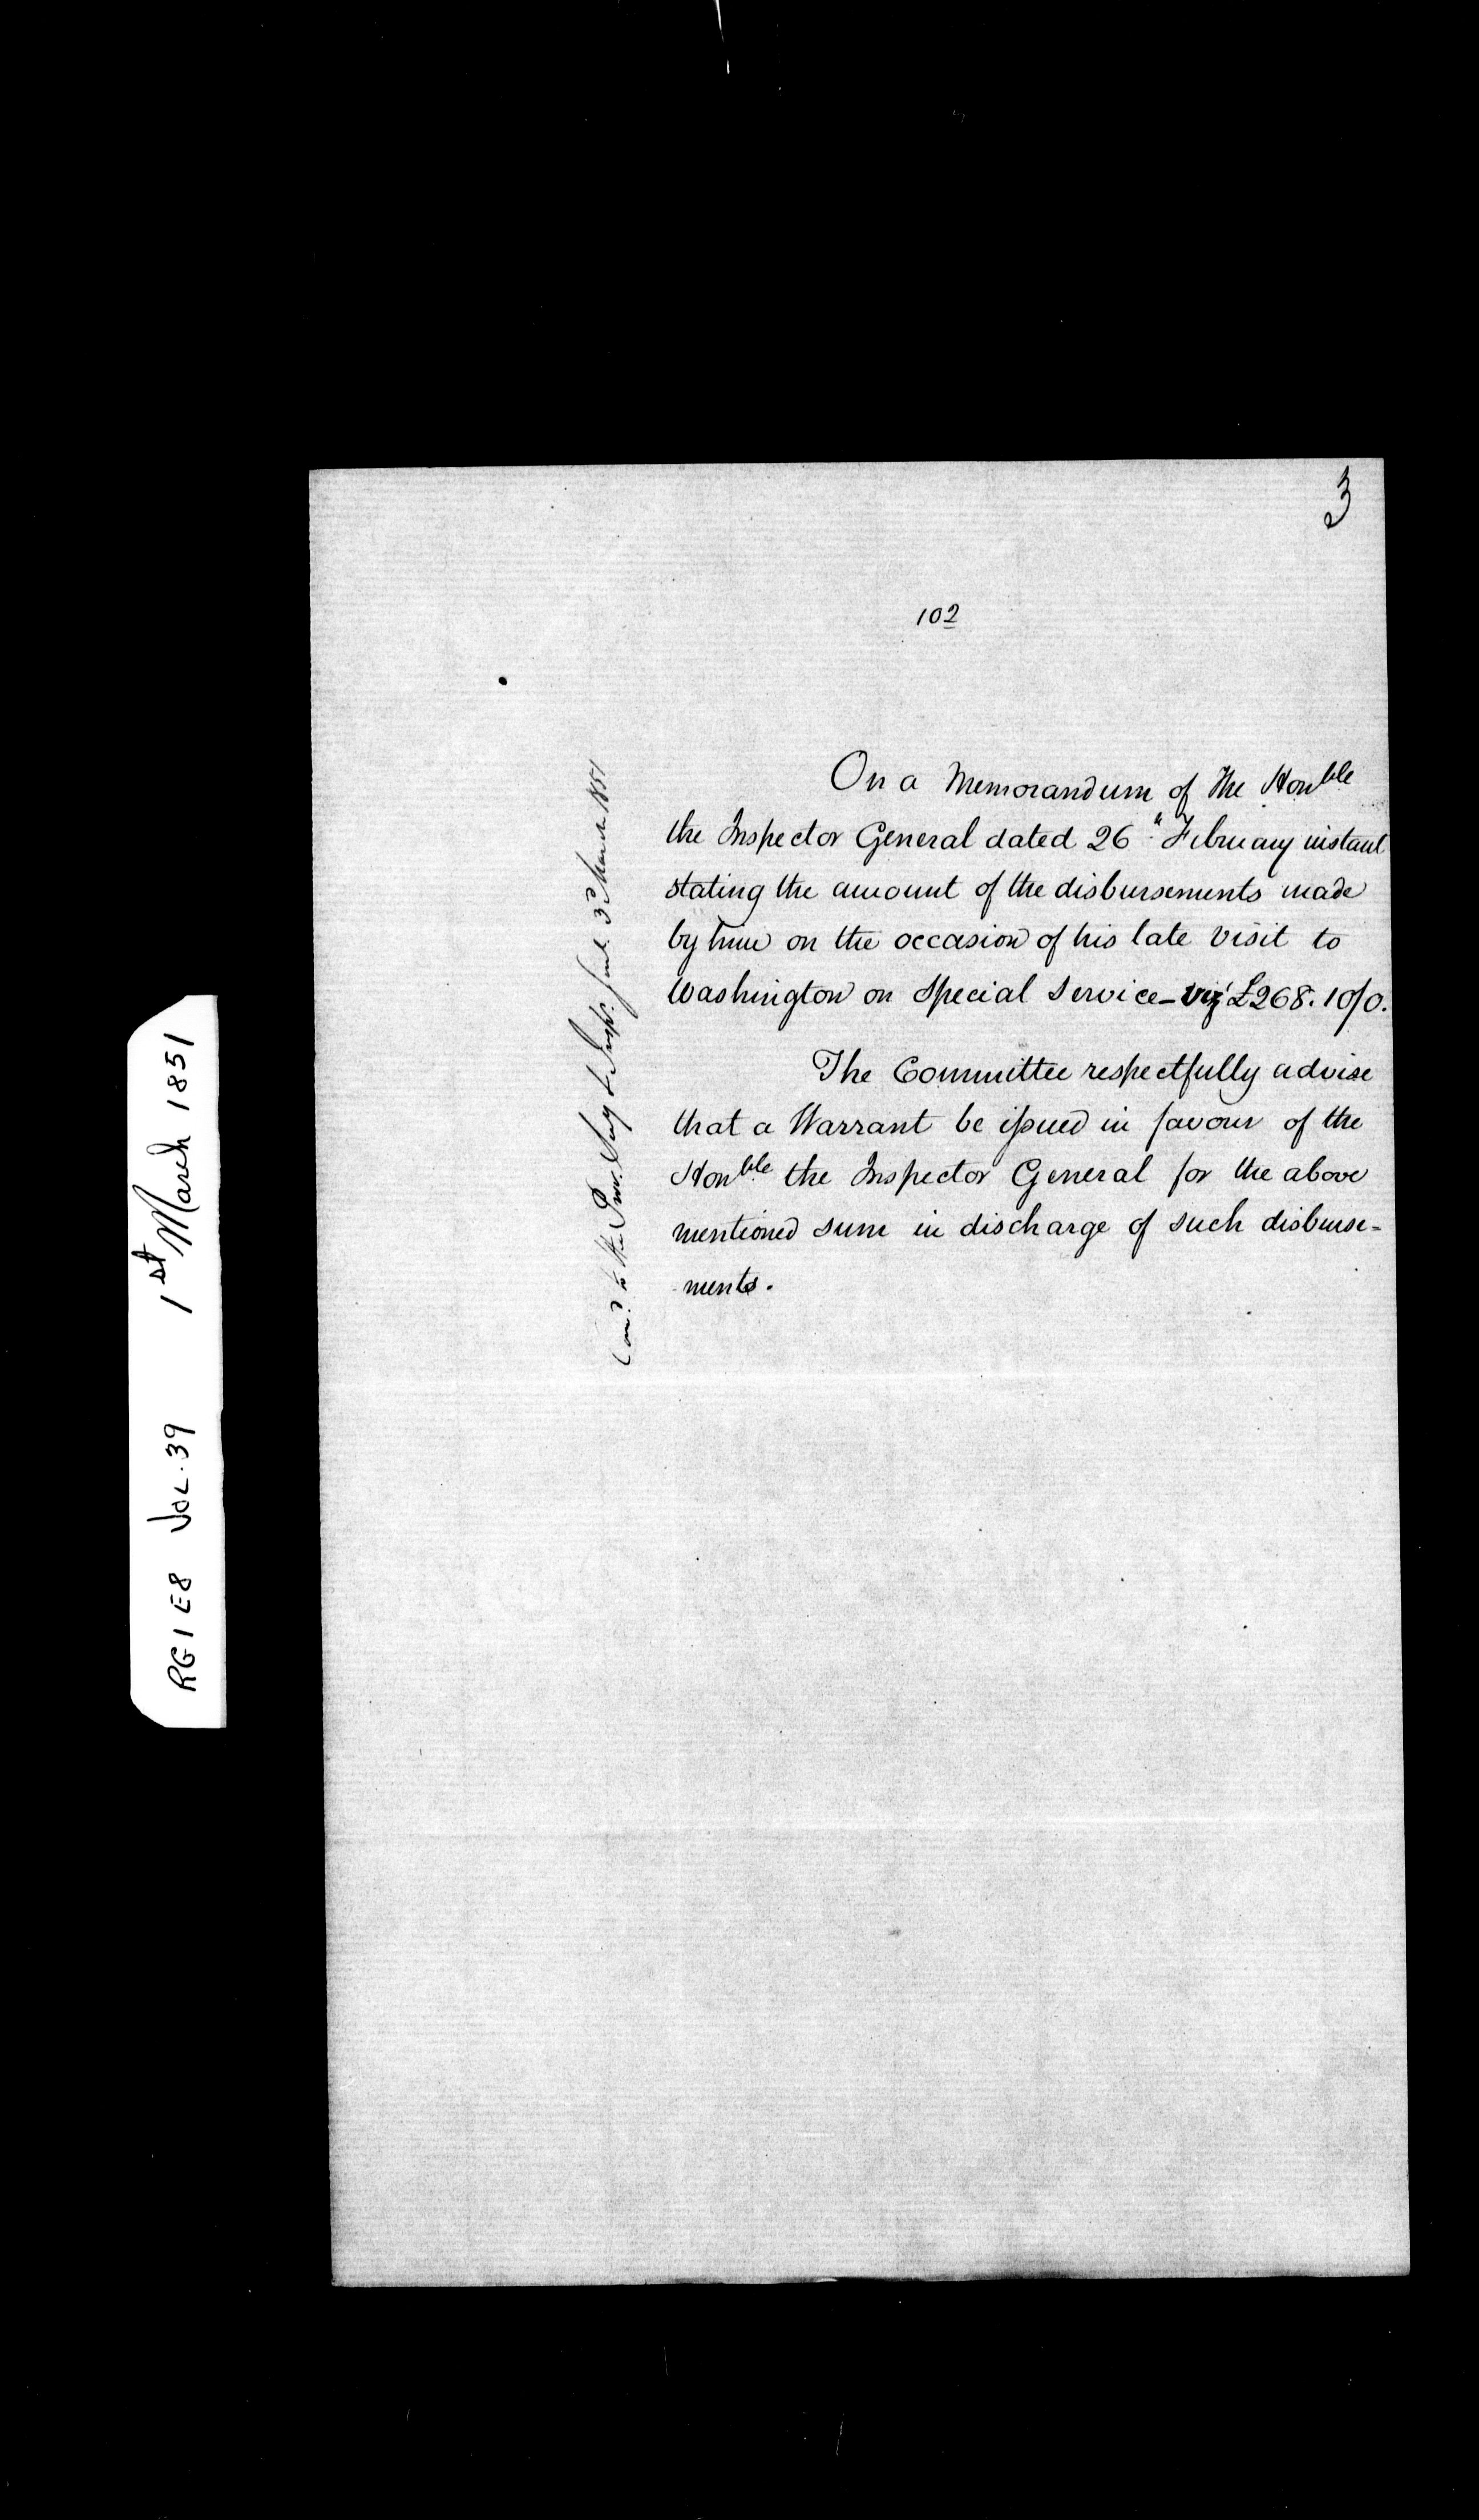 3
102
On a Memorandum of The Honble
the Inspector General dated 26" February instant
stating the amount of the disbursements made
by him on the occasion of his late visit to
Washington on Special Service - viz £268.10/0.
The Committee respectfully advise
that a Warrant be issued in favour of the
Honble the Inspector General for the above
mentioned sum in discharge of such disburse-
ments.
Comd to the Prov. Secy & Insp. Genl. 3d March 1851
RG1 E8 VOL.39 1st March 1851